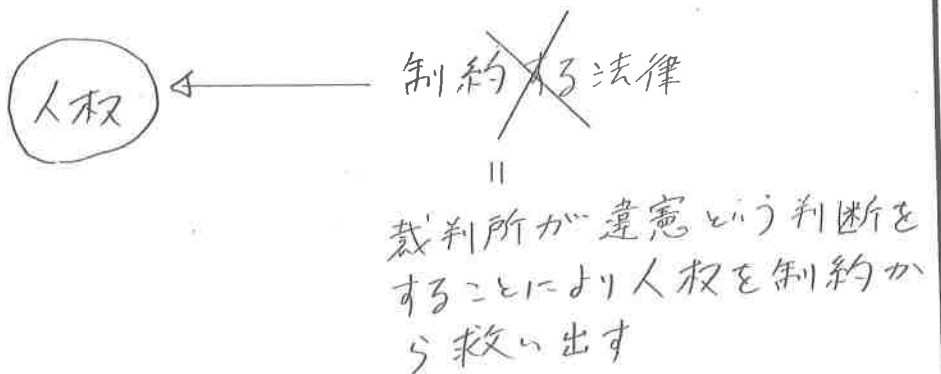 人权
制約する法律
=
裁判所が違憲という判断を
することにより人权を制約か
ら救い出す